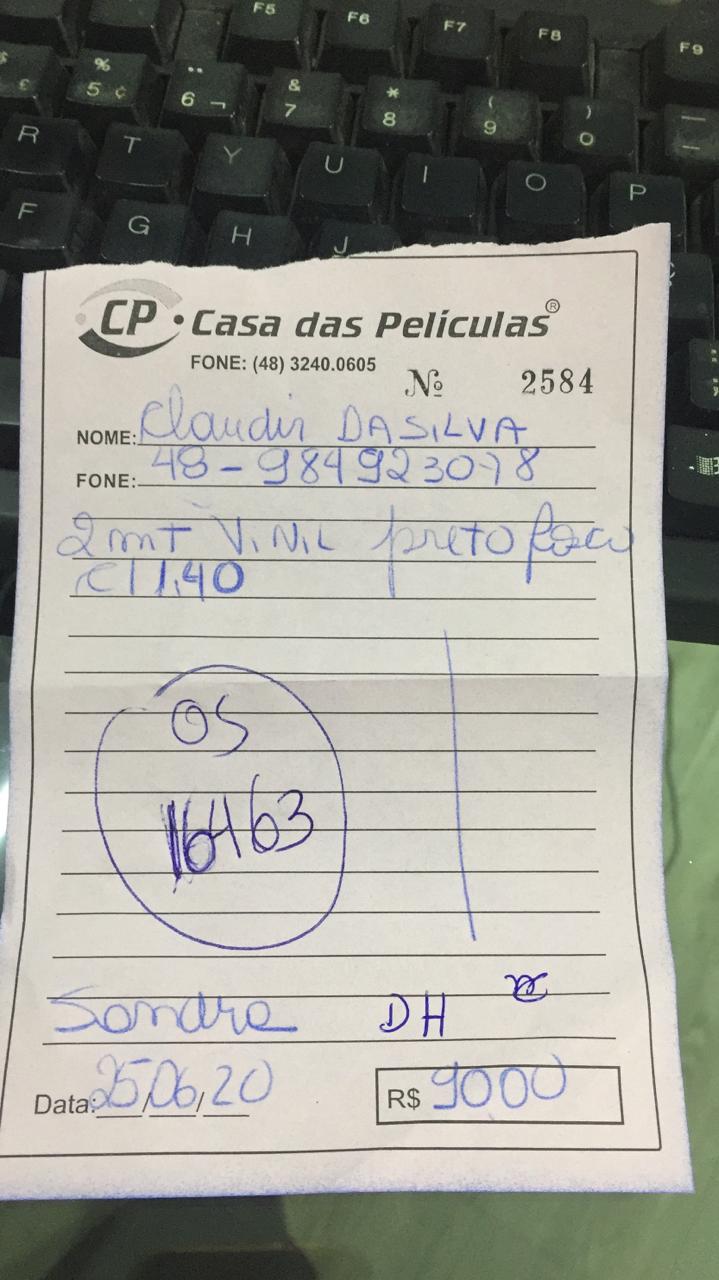 F5 F6 F7 F8 F9
% 5 ¢ ¨ 6 ¬ & 7 * 8 ( 9 ) 0
R T Y U I O P
F G H J
CP • Casa das Películas®
FONE: (48) 3240.0605
Nº 2584
NOME: Claudir DA SILVA
FONE: 48-984923078
2 mT ViNiL preto fosco
C/ 1,40
OS
16463
Sandra DH
Data: 25/06/20 R$ 9000